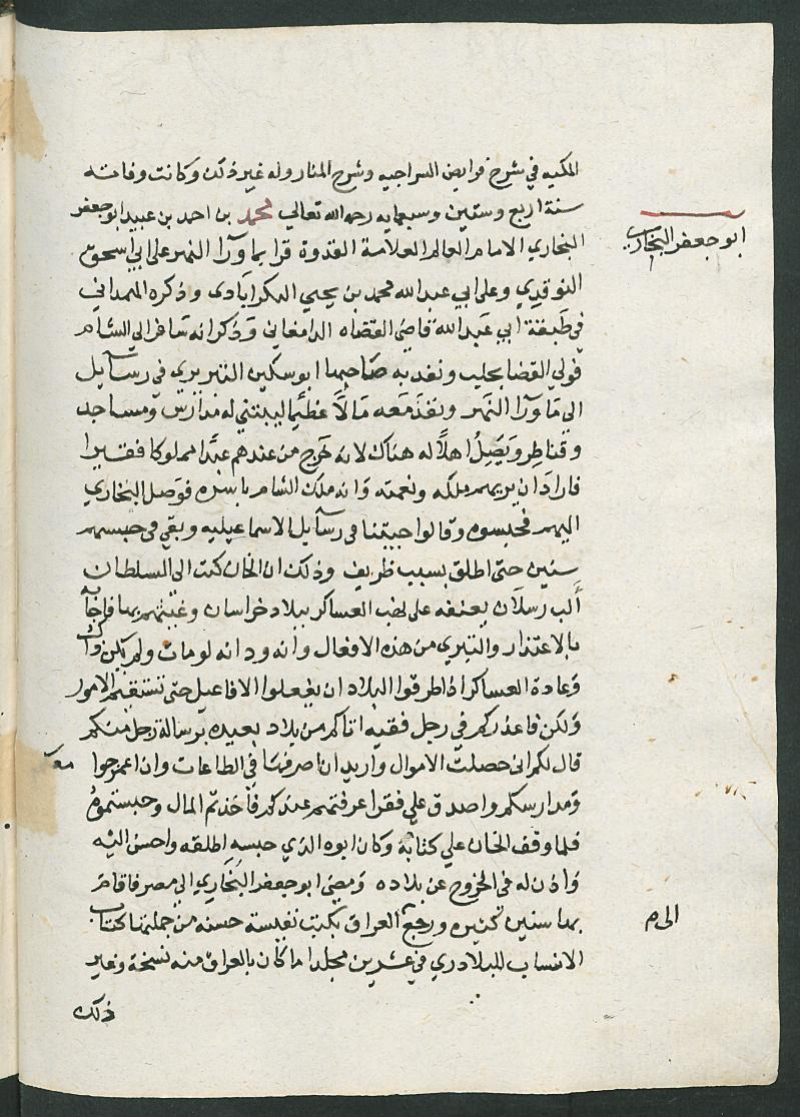 المكيه في شرح فرايض السراجيه وشرح المنار وله غير ذلك وكانت وفاته
سنة اربع وستين وسبعمايه رحمه الله تعالي محمد بن احمد بن عبيد ابو جعفر
ابو جعفر البخاري
البخاري الامام العالم العلامة القدوة قرا بما ورآ النهر علي ابي اسحق
النوقدي وعلي ابي عبد الله محمد بن يحيي البكرابادي وذكره الهمداني
في طبقة ابي عبد الله قاضي القضاه الدامغاني وذكر انه سافر الي الشام
فولي القضا بحلب ونفد به صاحبها ابو سكين التبريزي في رسآيل
الي ما ورآ النهر ونفذ معه مالاً عظيما ليبتني له مدارس ومساجد
وقناطر ويصل اهلاً له هناك لانه خرج من عندهم عبدا مملوكا فقيرا
فاراد ان يريهم ملكه ونعمته وانه ملك الشام باسره فوصل البخاري
اليهم فحبسوه وقالوا جيتنا في رسآيل الاسماعيليه وبقي في حبسهم
سنين حتي اطلق بسبب ظريف وذلك ان الخان كتب الي السلطان
ألب رسلان يعنفه علي العساكر ببلاد خراسان بها فاجآ
بالاعتذار والتبري من هذه الافعال وانه ود انه لو مات ولم يكن ذاك
وعادة العساكر اذا طرقوا البلاد ان يفعلوا الافاعيل حتي تستقيم الامور
ولكن ما عذركم في رجل فقيه اتاكم من بلاد بعيده برسالة رجل منكم
قال لكم اني حصلت الاموال واريد ان اصرفها في الطاعات وان اعمر
ومدارسكم واصدق علي فقرا عرفتهم عندكم فاخذتم المال وحبستموهُ
فلما وقف الخان علي كتابه وكان ابوه الذي حبسه اطلقه واحسن اليه
واذن له في الخروج عن بلاده ومضي ابو جعفر البخاري الي مصر فاقام
بها سنين كثيره ورجع العراق بكتب نفيسة حسنه من جملتها كتاب
الي م
الانساب للبلادري في عشرين مجلدا ما كان بالعراق منه نسخة وغير
ذلك